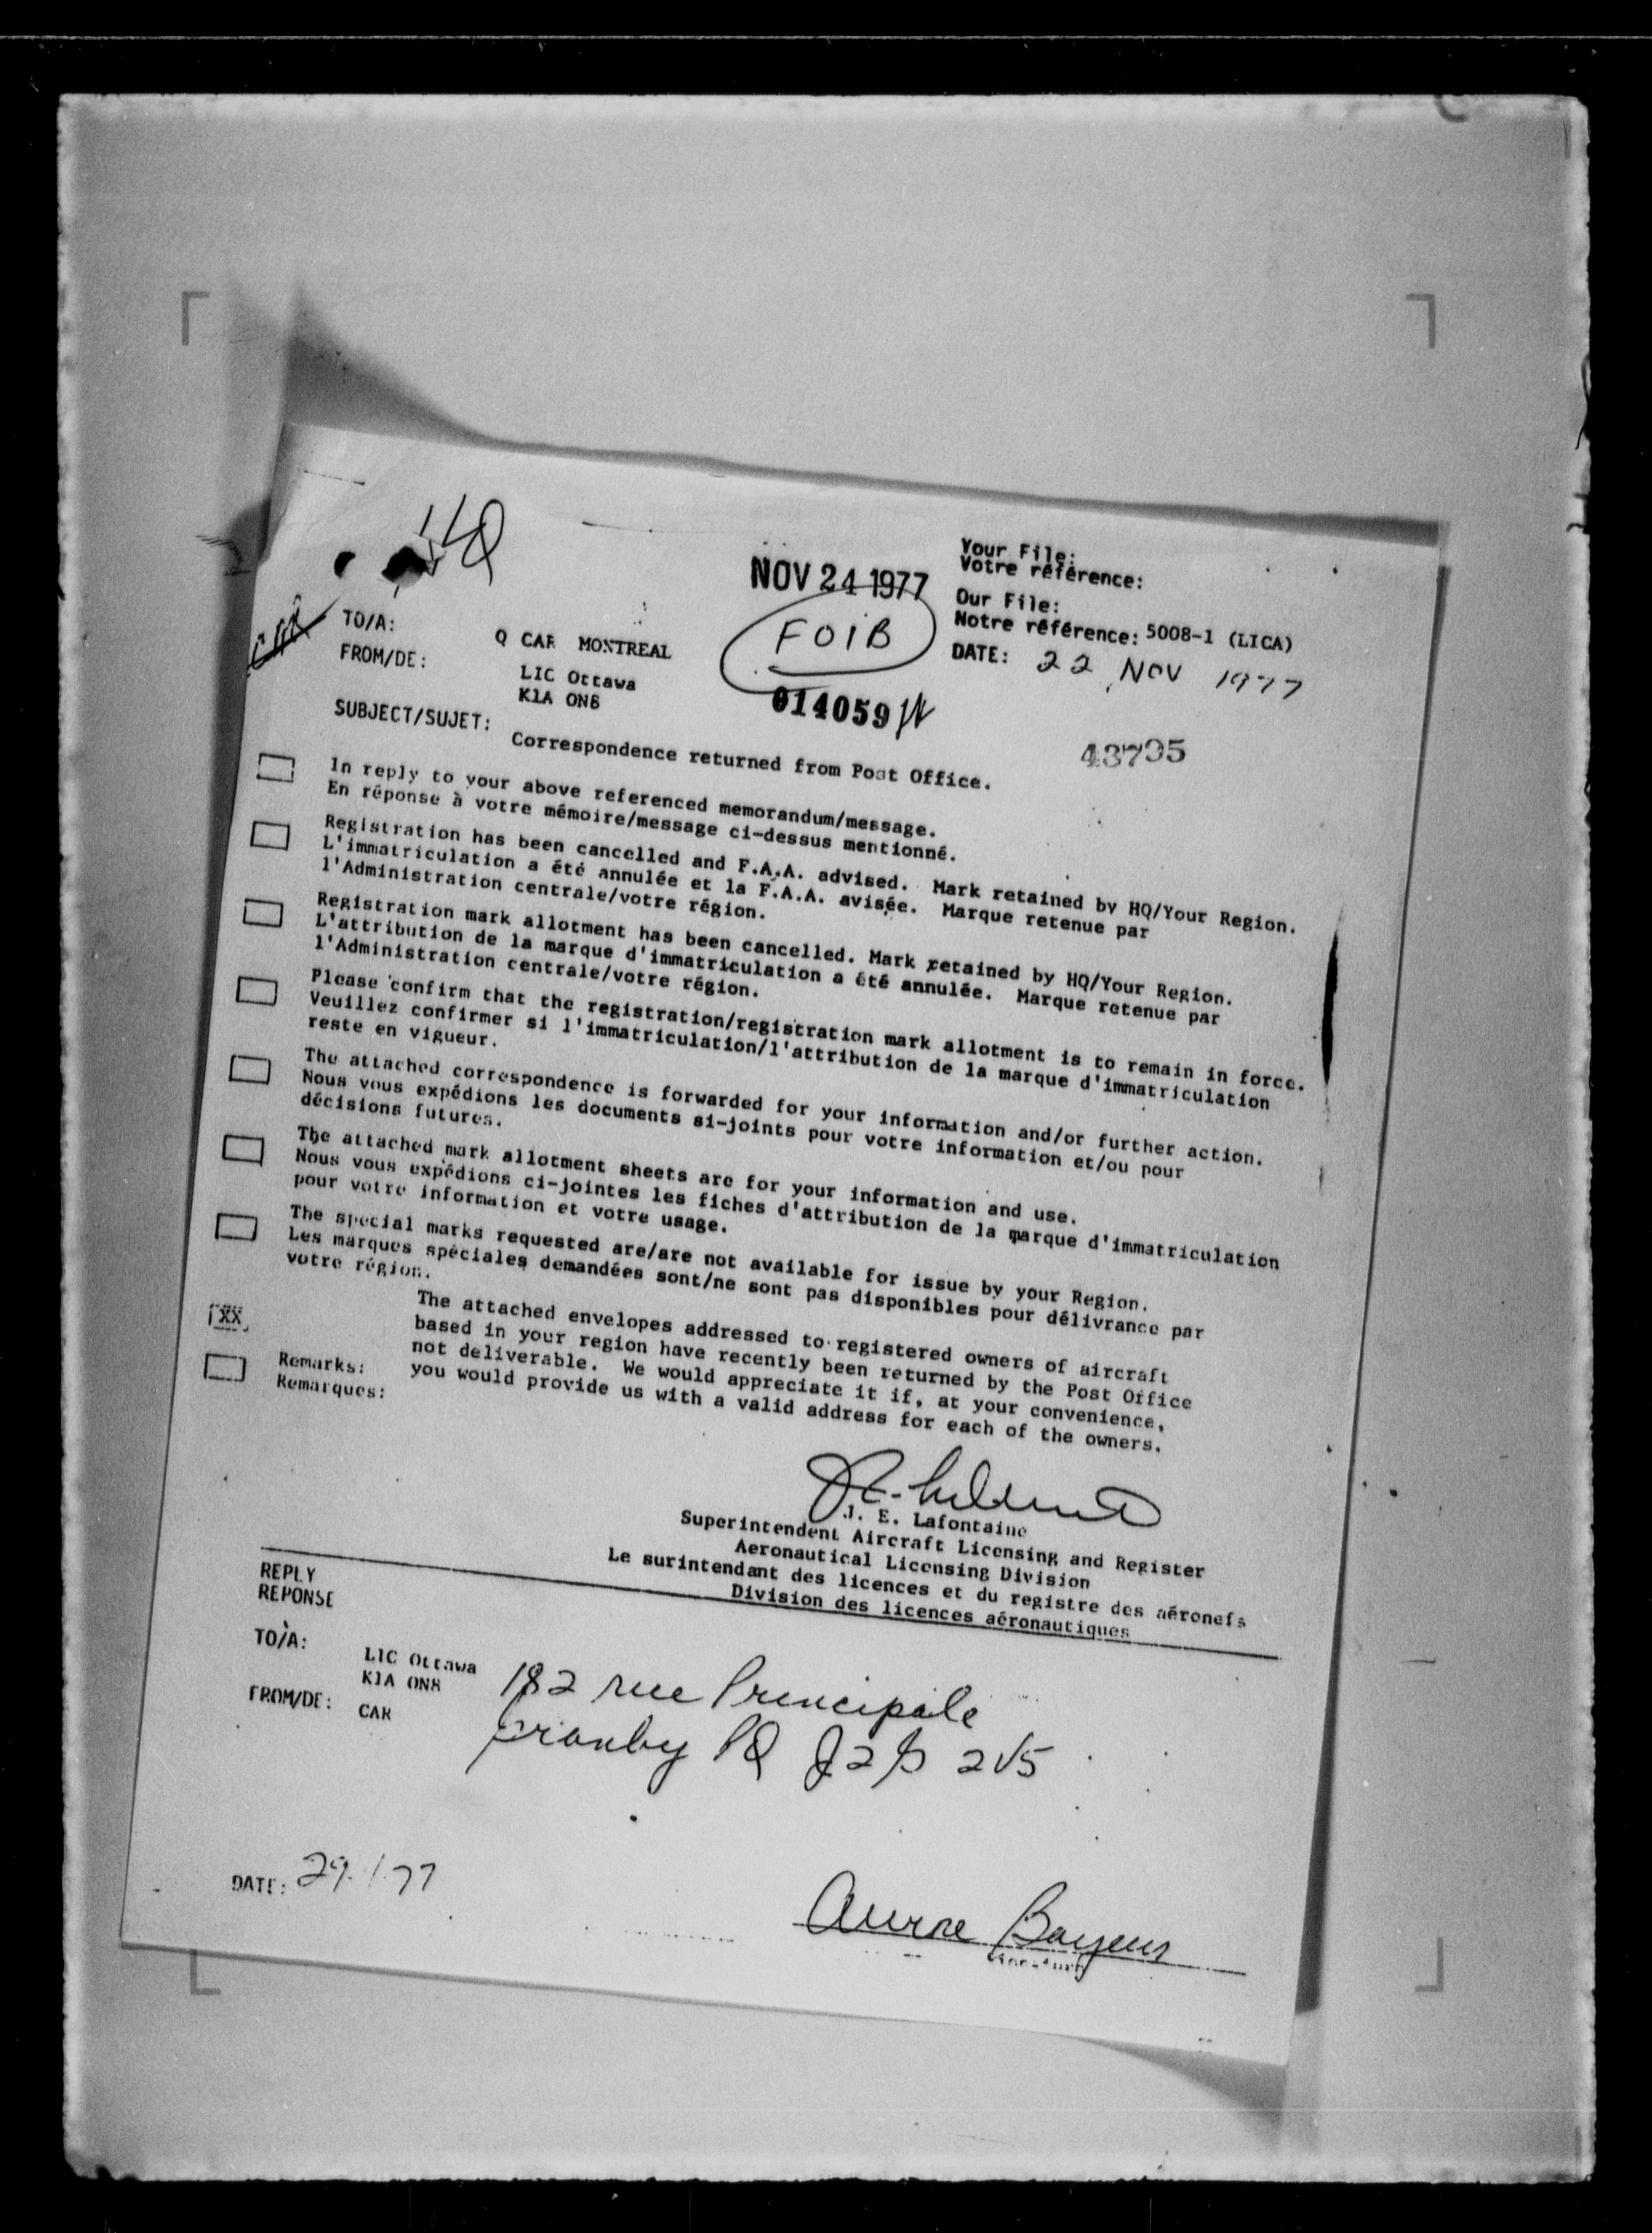 NOV 24 1977
Your File:
Votre référence:
Our File:
Notre référence: 5008-1 (LICA)
DATE: 22 NOV 1977
FOIB
TO/A: Q CAR MONTREAL
FROM/DE: LIC Ottawa
K1A ON8
014059
43795
SUBJECT/SUJET: Correspondence returned from Post Office.
In reply to your above referenced memorandum/message.
En réponse à votre mémoire/message ci-dessus mentionné.
Registration has been cancelled and F.A.A. advised. Mark retained by HQ/Your Region.
L'immatriculation a été annulée et la F.A.A. avisée. Marque retenue par
l'Administration centrale/votre région.
Registration mark allotment has been cancelled. Mark retained by HQ/Your Region.
L'attribution de la marque d'immatriculation a été annulée. Marque retenue par
l'Administration centrale/votre région.
Please confirm that the registration/registration mark allotment is to remain in force.
Veuillez confirmer si l'immatriculation/l'attribution de la marque d'immatriculation
reste en vigueur.
The attached correspondence is forwarded for your information and/or further action.
Nous vous expédions les documents si-joints pour votre information et/ou pour
décisions futures.
The attached mark allotment sheets are for your information and use.
Nous vous expédions ci-jointes les fiches d'attribution de la marque d'immatriculation
pour votre information et votre usage.
The special marks requested are/are not available for issue by your Region.
Les marques spéciales demandées sont/ne sont pas disponibles pour délivrance par
votre région.
XX
The attached envelopes addressed to registered owners of aircraft
based in your region have recently been returned by the Post Office
Remarks: not deliverable. We would appreciate it if, at your convenience,
Remarques: you would provide us with a valid address for each of the owners.
J. E. Lafontaine
Superintendent Aircraft Licensing and Register
Aeronautical Licensing Division
Le surintendant des licences et du registre des aéronefs
Division des licences aéronautiques
REPLY
REPONSE
TO/A: LIC Ottawa
K1A ON8
FROM/DE: CAR
182 rue Principale
Granby PQ J2G 2V5
DATE: 29.1.77